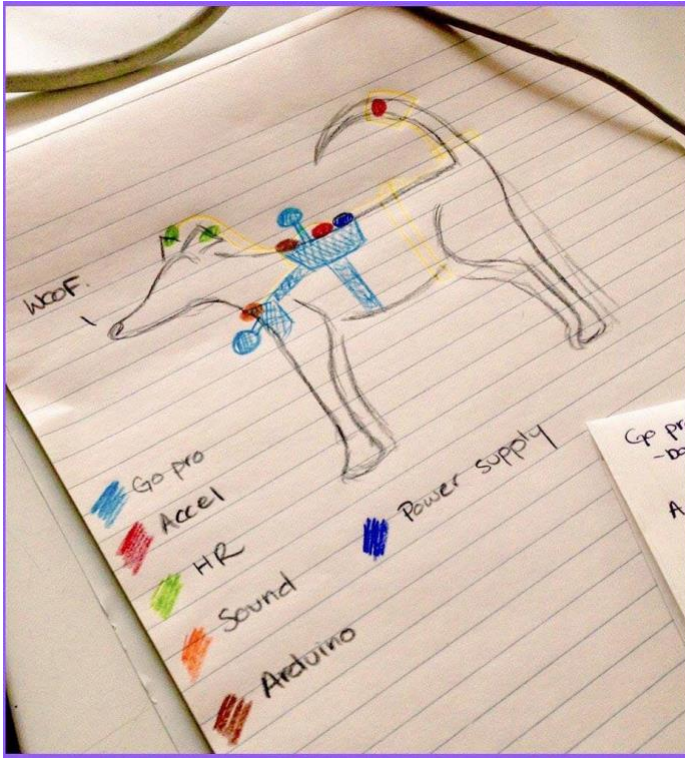 WOOF.
Go pro
Accel
HR
Sound
Arduino
Power supply
Go pr
A